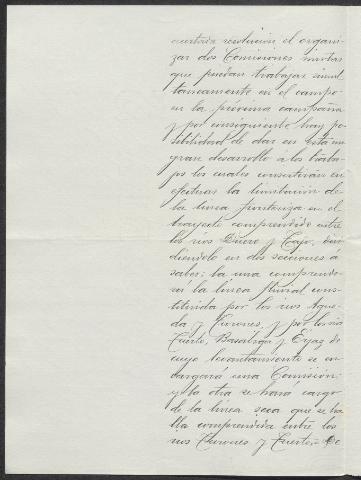 resolución el organi-
zar dos Comisiones mixtas
que puedan trabajar simul-
táneamente en el campo
en la próxima campaña
y por consiguiente hay po-
sibilidad de dar en esta un
gran desarrollo á los traba-
jos los cuales consistirán en
efectuar la limitación de
la línea fronteriza en el
trayecto comprendido entre
los rios Duero y Tajo, divi-
diendolo en dos secciones á
saber: la una comprende-
rá la línea fluvial cons-
tituida por los rios Ague-
da y Turones, y por los rios
Torto, Basabiga y Erjas de
cuyo levantamiento se en-
cargará una Comisión;
y la otra se hará cargo
de la línea seca que se ha-
lla comprendida entre los
rios Turones y Tuerto. De